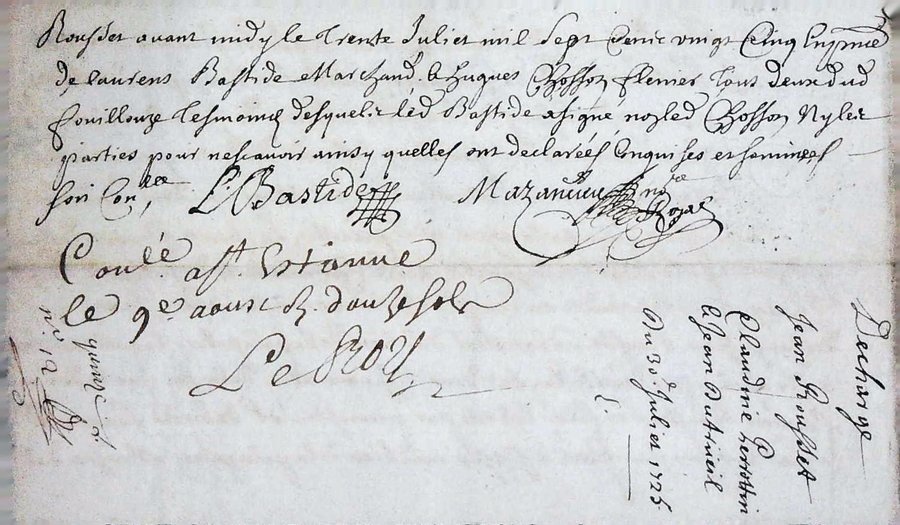 Rousset avant midy le trente Juliet mil sept cenic vingt cinq En pnce
de laurens Bastide Marchand & hugues Chosson flenier tous deux dud
fouillouze tesmoins desquels led Bastide a signé no led Chosson Ny les
parties pour ne scavoir ainsy quelles ont declarées Enquises et sommées
L. Bastide Mazancieu nore Royal
Conlé a St Estienne
le 9e aoust R. douze sols
Le Roy
Decharge
Jean Rousset
Claudine
& Jean Dutrieil
Du 30 Juliet 1725